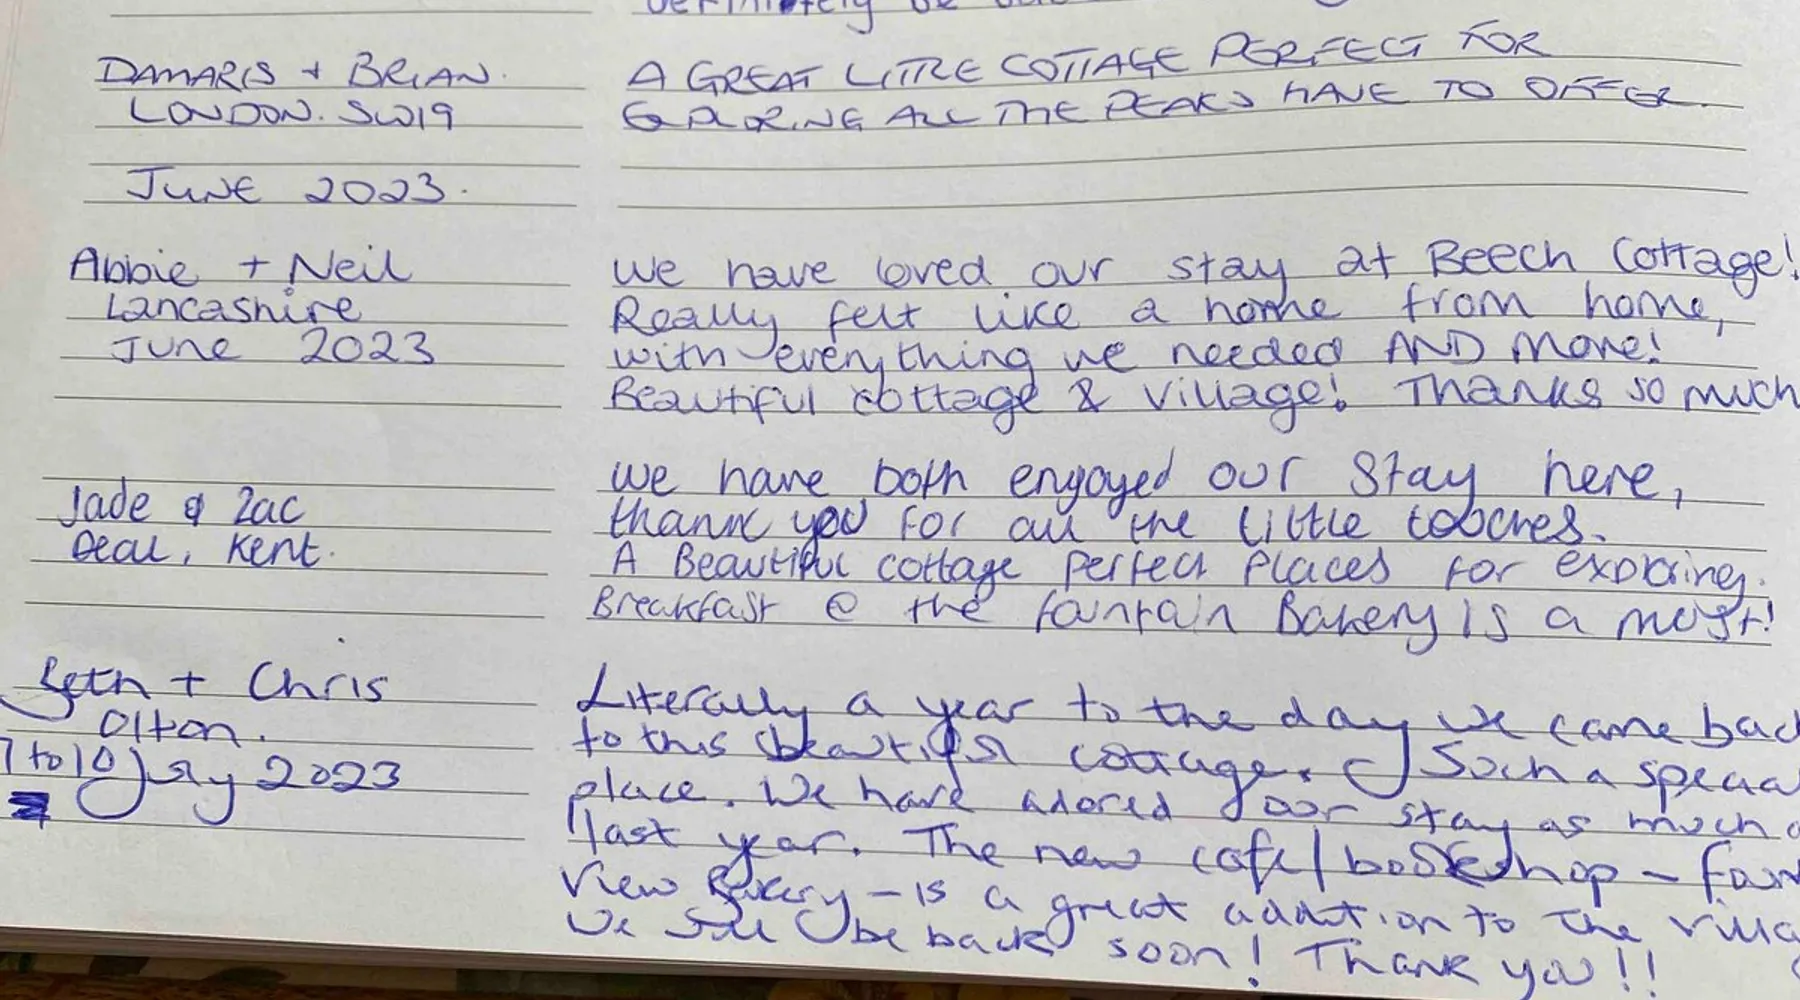 definitely be
DAMARIS + BRIAN.
LONDON. SW19
JUNE 2023.
A GREAT LITTLE COTTAGE PERFECT FOR
EXPLORING ALL THE PEAKS HAVE TO OFFER.
Abbie + Neil
Lancashire
June 2023
We have loved our stay at Beech Cottage!
Really felt like a home from home,
with everything we needed AND more!
Beautiful cottage & village! Thanks so much
Jade & Zac
Deal, Kent.
We have both engoyed our stay here,
thank you for all the little touches.
A Beautiful cottage perfect places for exploring.
Breakfast @ the fountain Bakery is a must!
Beth + Chris
Olton.
7 to 10 July 2023
Literally a year to the day we came bac
to this beautiful cottage. Such a special
place. We have adored our stay as much a
last year. The new cafe/bookshop - Foun
View Bakery - is a great addition to the villag
We will be back soon! Thank you!!